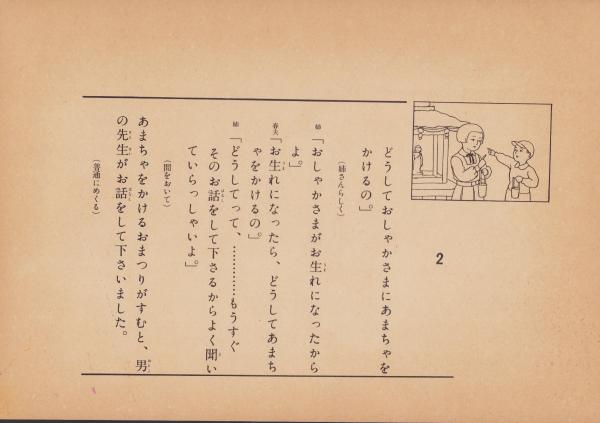 2
どうしておしゃかさまにあまちゃを
かけるの」。
(姉さんらしく)
姉「おしゃかさまがお生れになったから
よ」。
春夫「お生れになったら、どうしてあまち
ゃをかけるの」。
姉「どうしてって、…………もうすぐ
そのお話をして下さるからよく聞い
ていらっしゃいよ」。
(間をおいて)
あまちゃをかけるおまつりがすむと、男
の先生がお話をして下さいました。
(普通にめくる)